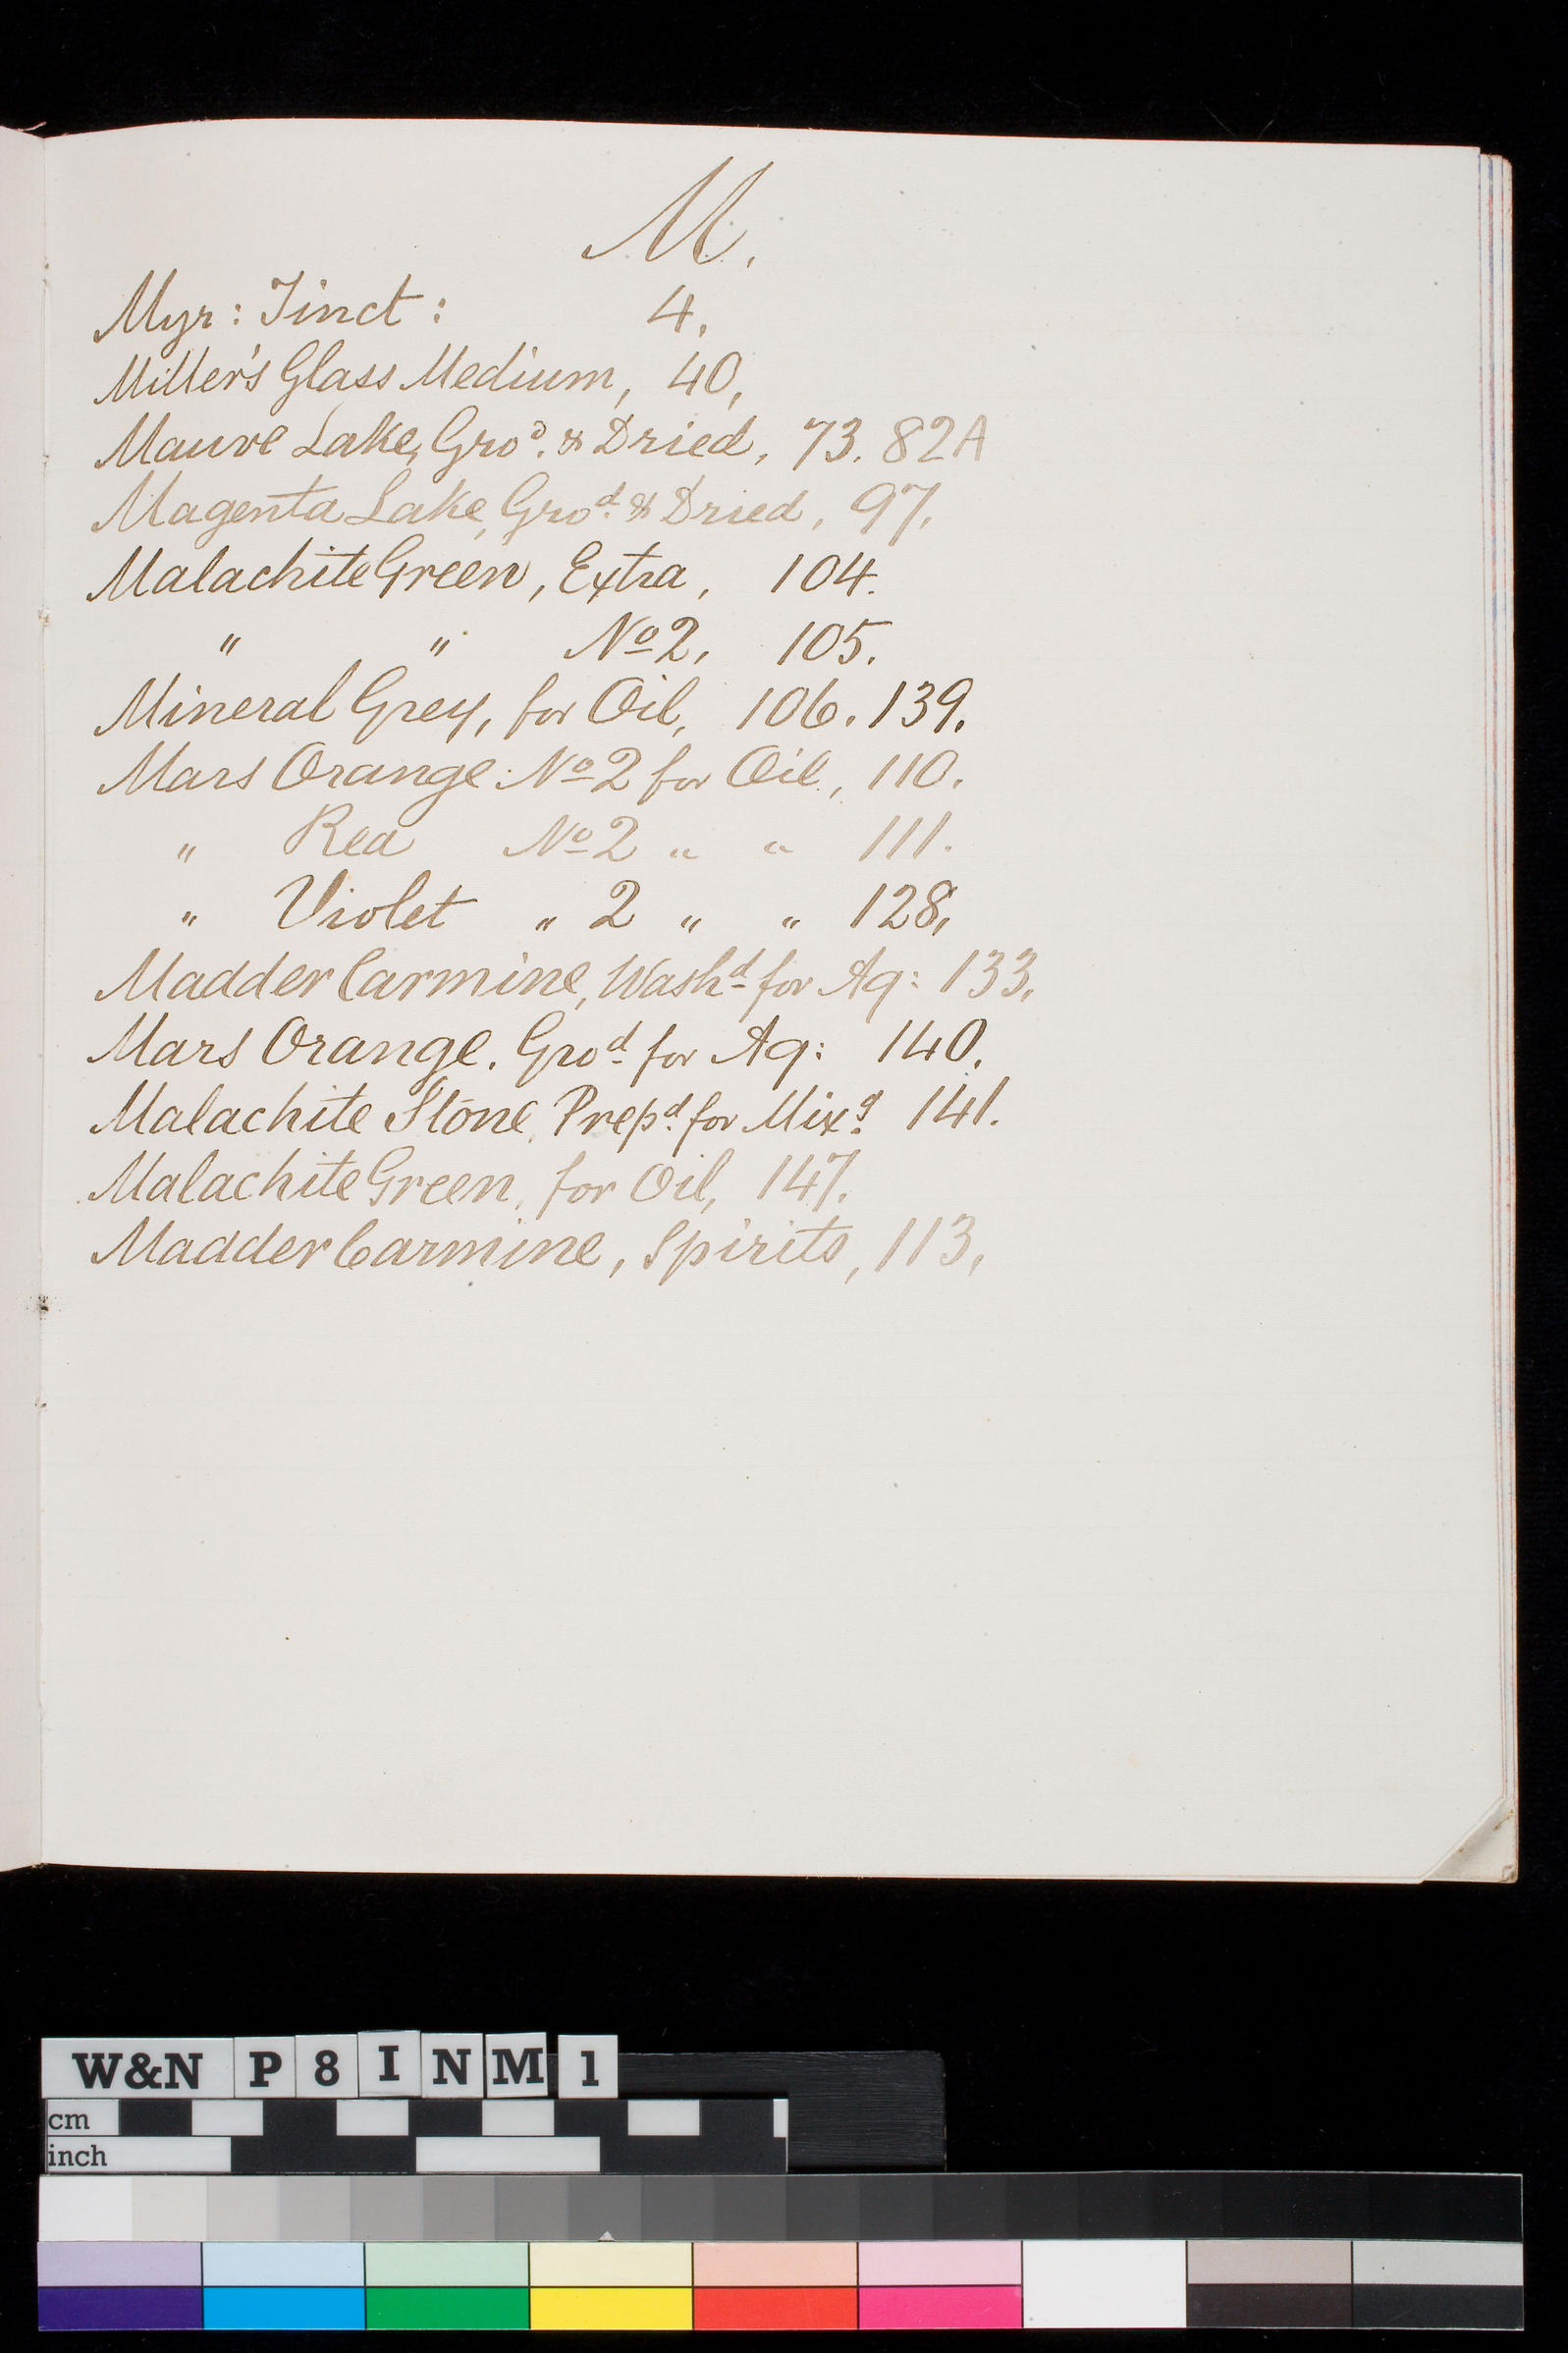 M.
Myr: Tinct: 4,
Miller's Glass Medium, 40,
Mauve Lake, Gro^d. & Dried, 73. 82A
Magenta Lake, Gro^d. & Dried, 97,
Malachite Green, Extra, 104.
" " Nº 2, 105.
Mineral Grey, for Oil, 106. 139.
Mars Orange Nº 2 for Oil, 110.
" Red Nº 2 " " 111.
" Violet " 2 " " 128,
Madder Carmine, Wash^d for Aq: 133,
Mars Orange. Gro^d for Aq: 140.
Malachite Stone, Prep^d. for Mix^g. 141.
Malachite Green, for Oil, 147.
Madder Carmine, Spirits, 113,
W&N P 8 I N M 1
cm
inch